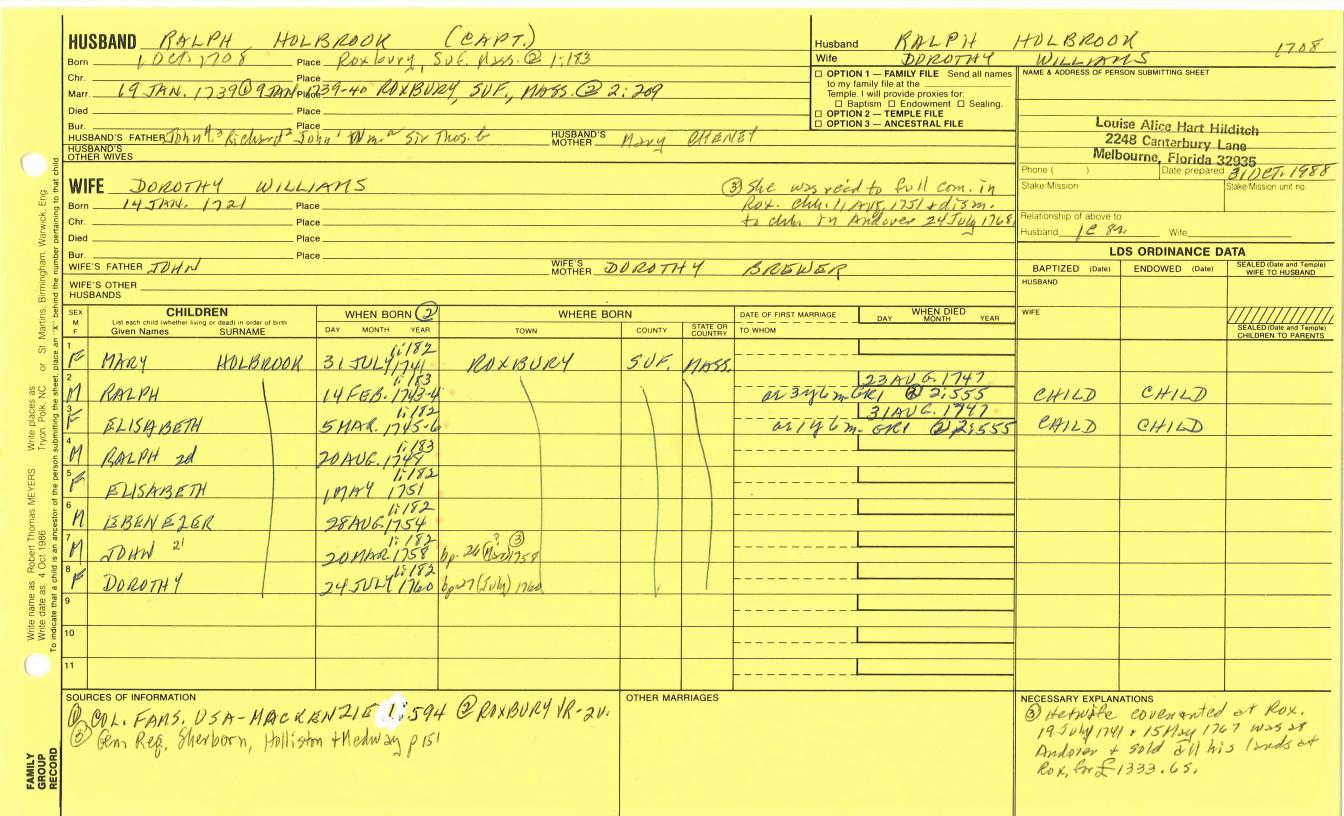 HUSBAND RALPH HOLBROOK (CAPT.)
Born 1 OCT. 1708 Place Roxbury, SUF. Mass. ② 1:183
Chr. Place
Marr 19 JAN. 1739 @ 9 JAN. 1739-40 Place ROXBURY, SUF., MASS. ② 2:209
Died Place
Bur. Place
HUSBAND'S FATHER John Richard² John¹ Wm.ᵃ Sir Thos. HUSBAND'S MOTHER Mary CHENEY
HUSBAND'S OTHER WIVES
Husband RALPH HOLBROOK 1708
Wife DOROTHY WILLIAMS
☐ OPTION 1 — FAMILY FILE Send all names
to my family file at the
Temple. I will provide proxies for:
☐ Baptism ☐ Endowment ☐ Sealing.
☐ OPTION 2 — TEMPLE FILE
☐ OPTION 3 — ANCESTRAL FILE
NAME & ADDRESS OF PERSON SUBMITTING SHEET
Louise Alice Hart Hilditch
2248 Canterbury Lane
Melbourne, Florida 32935
Phone ( ) Date prepared 31 OCT. 1988
Stake Mission Stake Mission unit no.
Relationship of above to
Husband Wife
WIFE DOROTHY WILLIAMS
Born 14 JAN. 1721 Place
Chr. Place
Died Place
Bur. Place
③ She was rec'd to full com. in
Rox. chh. 11 Aug. 1751 & dism.
to chh. in Andover 24 July 1768
WIFE'S FATHER JOHN WIFE'S MOTHER DOROTHY BREWER
WIFE'S OTHER HUSBANDS
LDS ORDINANCE DATA
BAPTIZED (Date) ENDOWED (Date) SEALED (Date and Temple) WIFE TO HUSBAND
HUSBAND
WIFE
SEALED (Date and Temple) CHILDREN TO PARENTS
SEX M F CHILDREN WHEN BORN ② WHERE BORN DATE OF FIRST MARRIAGE WHEN DIED
List each child (whether living or dead) in order of birth
Given Names SURNAME DAY MONTH YEAR TOWN COUNTY STATE OR COUNTRY TO WHOM DAY MONTH YEAR
1 F MARY HOLBROOK 31 JULY 1741 1:182 ROXBURY SUF. MASS.
2 M RALPH 14 FEB. 1743-4 1:183 23 AUG. 1747 ae 3 y 6 m GR1 ② 2:555 CHILD CHILD
3 F ELISABETH 5 MAR. 1745-6 1:182 31 AUG. 1747 ae 1 y 6 m. GR1 ② 2:555 CHILD CHILD
4 M RALPH 2d 20 AUG. 1748 1:183
5 F ELISABETH 1 MAY 1751 1:182
6 M EBENEZER 28 AUG. 1754 1:182
7 M JOHN 20 MAR. 1758 1:182 bp. 26 (Mar) ? 1758 ③
8 F DOROTHY 24 JULY 1760 1:182 bp 27 (July) 1760
9
10
11
SOURCES OF INFORMATION
① COL. FAMS. USA-MACKENZIE 1:594 ② ROXBURY VR-2v.
③ Gen Reg. Sherborn, Holliston & Medway p 151
OTHER MARRIAGES
NECESSARY EXPLANATIONS
③ He & wife covenanted at Rox.
19 July 1741 & 15 May 1767 was at
Andover & sold all his lands at
Rox. for £1333.65.
FAMILY GROUP RECORD
Write name as: Robert Thomas MEYERS Write places as: Tryon, Polk, NC or St. Martins, Birmingham, Warwick, Eng.
Write date as: 4 Oct 1986
To indicate that a child is an ancestor of the person submitting the sheet, place an "X" behind the number pertaining to that child